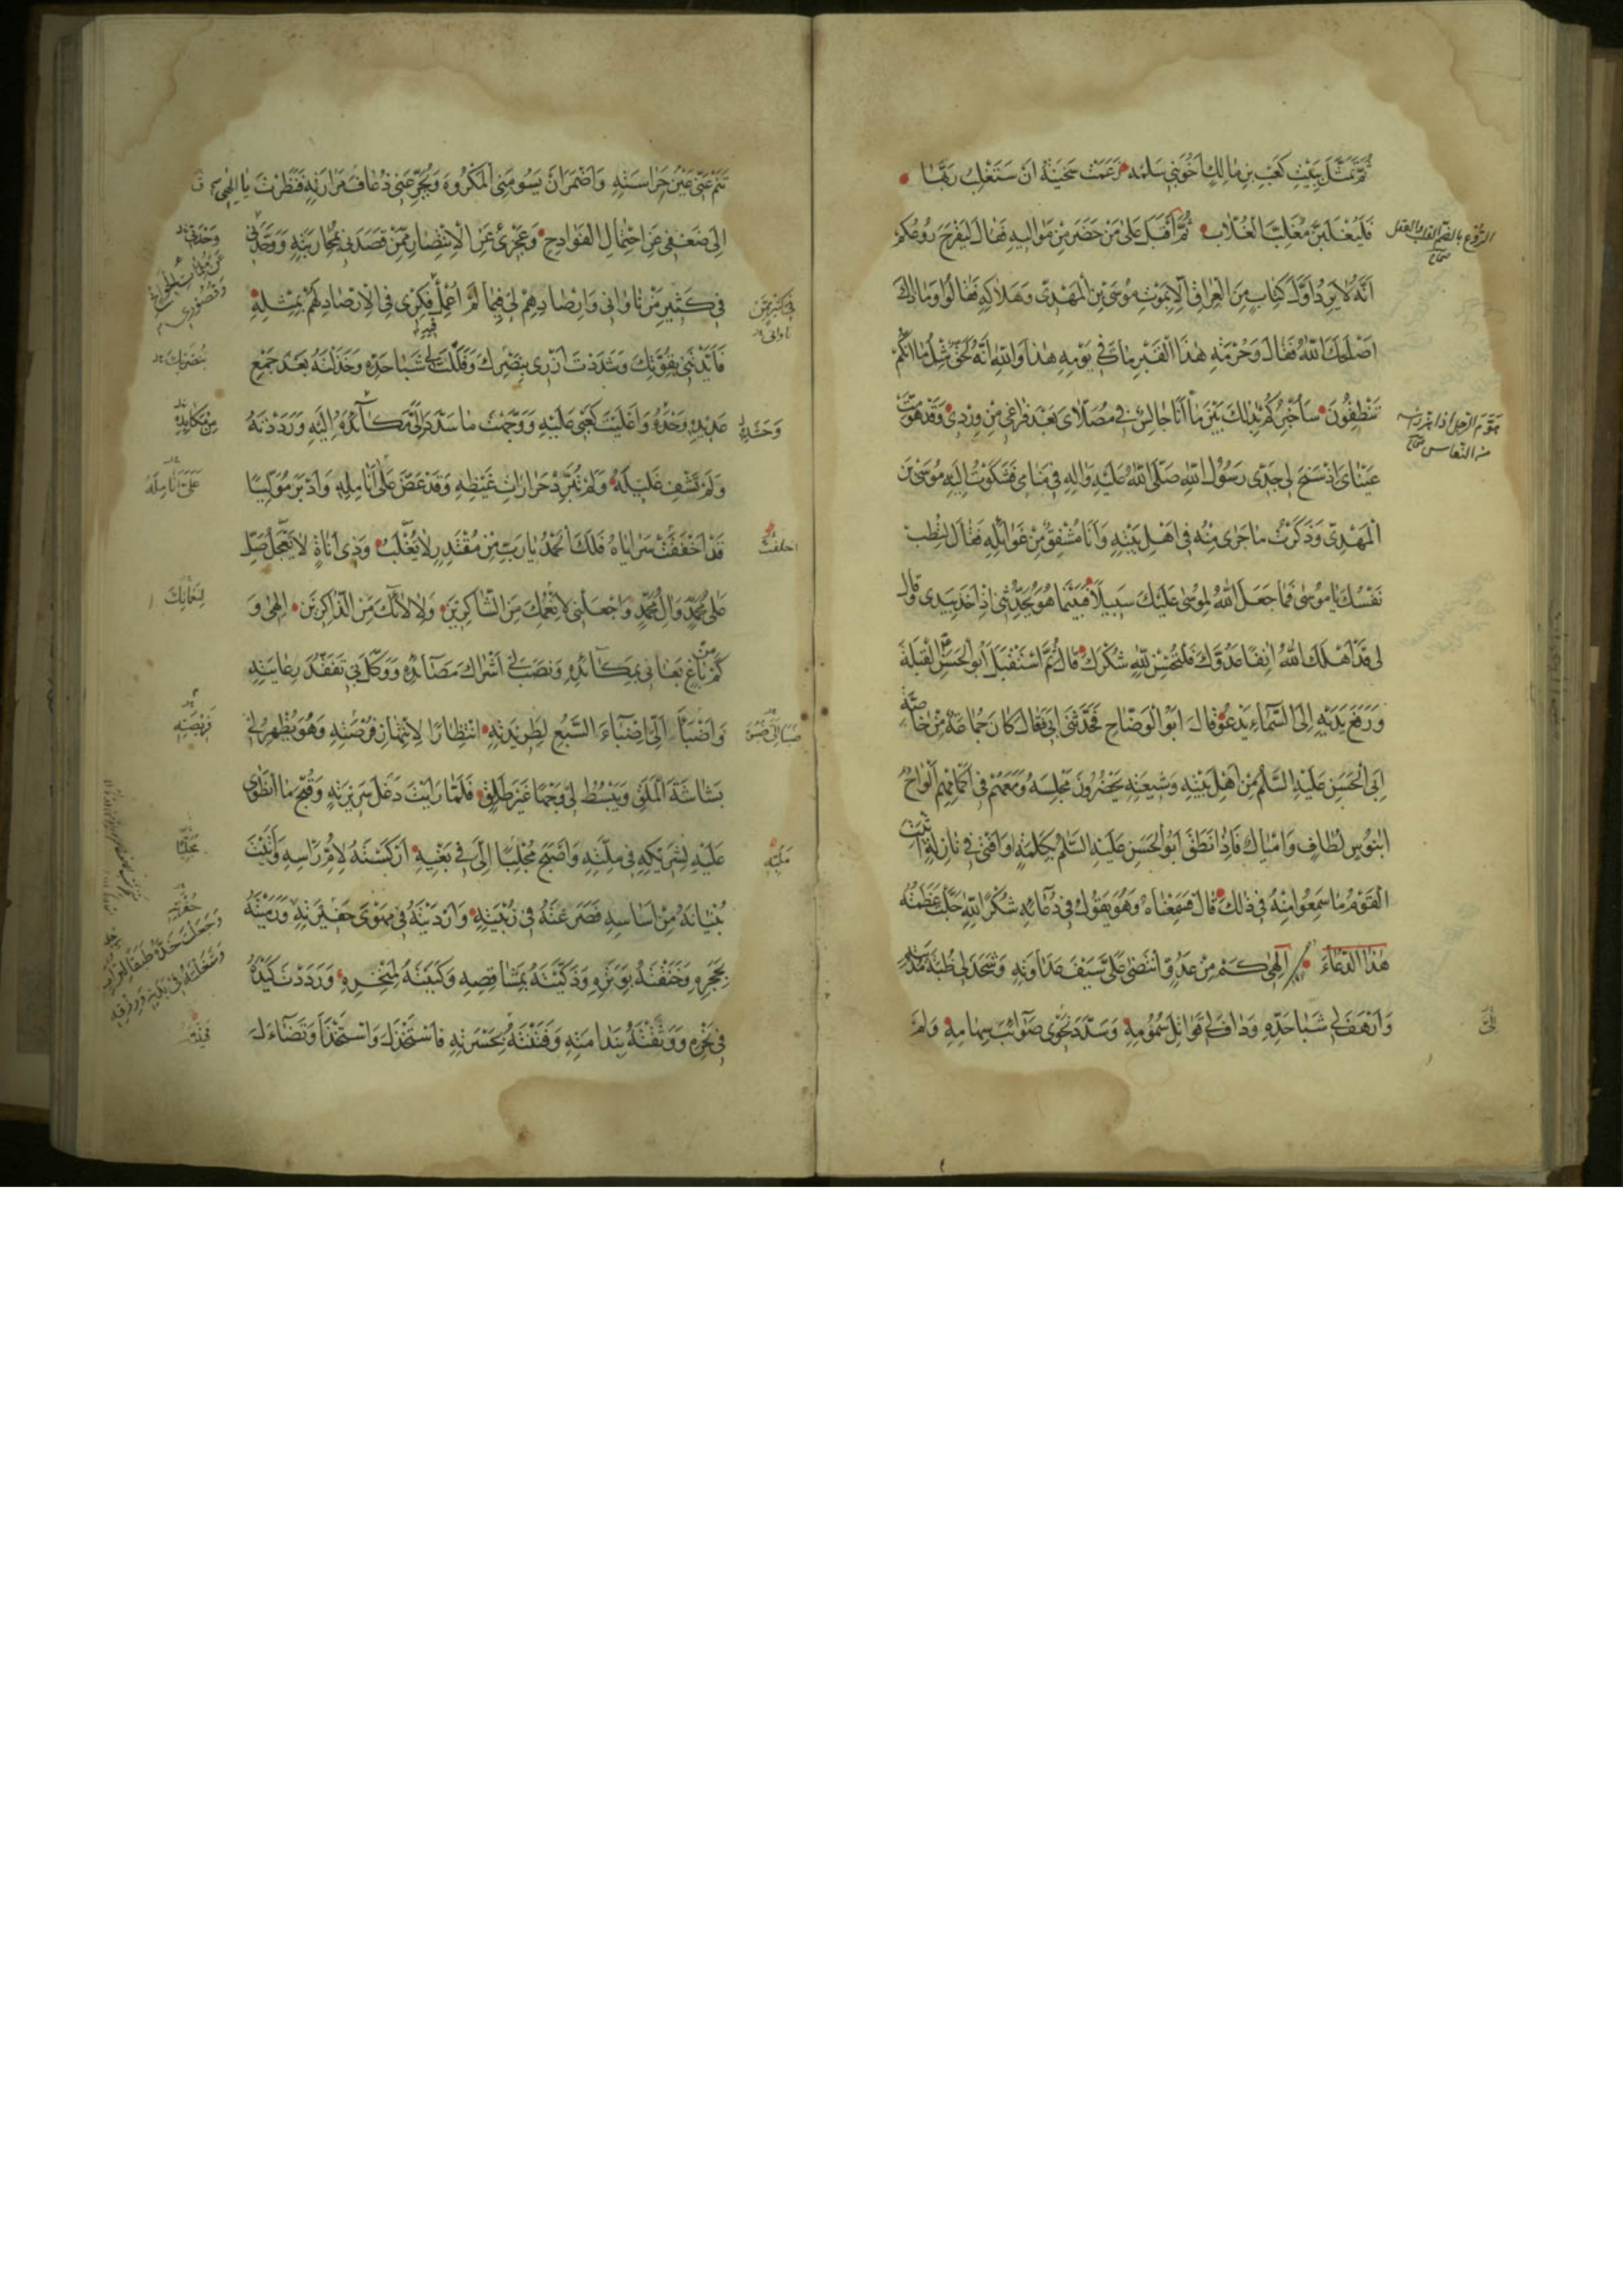 ثُمَّ تَمَثَّلَ بِبَيْتِ كَعْبِ بْنِ مَالِكٍ أَخُو بَنِي سَلِمَه زَعَمَتْ سَخِينَةُ أَنْ سَتَغْلِبُ رَبَّهَا
فَلَيُغْلَبَنَّ مُغَلِّبُ الْغُلَّابِ ثُمَّ أَقْبَلَ عَلَى مَنْ حَضَرَ مِنْ مَوَالِيهِ فَقَالَ لِيُفْرِحَ رَوْعُكُمْ
الروع بالضم القلب والعقل صحاح
أَنَّهُ لَا يَرِدُ أَوَّلُ كِتَابٍ مِنَ الْعِرَاقِ إِلَّا بِمَوْتِ مُوسَى بْنِ الْمَهْدِيِّ وَهَلَاكِهِ فَقَالُوا وَمَا ذَلِكَ
أَصْلَحَكَ اللهُ فَقَالَ وَحُرْمَةِ هٰذَا الْقَبْرِ مَاتَ فِي يَوْمِهِ هٰذَا وَاللهِ إِنَّهُ لَحَقٌّ مِثْلَ مَا أَنَّكُمْ
تَنْطِقُونَ سَأُخْبِرُكُمْ بِذٰلِكَ بَيْنَمَا أَنَا جَالِسٌ فِي مُصَلَّايَ بَعْدَ فَرَاغِي مِنْ وِرْدِي وَقَدْ هَوَّمَتْ
هوّم الرجل اذا هز راسه من النعاس صحاح
عَيْنَايَ إِذْ سَنَحَ لِي جَدِّي رَسُولُ اللهِ صَلَّى اللهُ عَلَيْهِ وَالِهِ فِي مَنَامِي فَشَكَوْتُ إِلَيْهِ مُوسَى بْنَ
الْمَهْدِيِّ وَذَكَرْتُ مَا جَرَى مِنْهُ فِي أَهْلِ بَيْتِهِ وَأَنَا مُشْفِقٌ مِنْ غَوَائِلِهِ فَقَالَ لِتَطِبْ
نَفْسُكَ يَا مُوسَى فَمَا جَعَلَ اللهُ لِمُوسَى عَلَيْكَ سَبِيلًا فَبَيْنَمَا هُوَ يُحَدِّثُنِي إِذْ أَخَذَ بِيَدِي وَقَالَ
لِي قَدْ أَهْلَكَ اللهُ آنِفًا عَدُوَّكَ فَلْتُحْسِنْ لِلّٰهِ شُكْرَكَ قَالَ ثُمَّ اسْتَقْبَلَ أَبُو الْحَسَنِ الْقِبْلَةَ
وَرَفَعَ يَدَيْهِ إِلَى السَّمَاءِ يَدْعُو قَالَ أَبُو الْوَضَّاحِ فَحَدَّثَنِي أَبِي فَقَالَ كَانَ جَمَاعَةٌ مِنْ خَاصَّةِ
أَبِي الْحَسَنِ عَلَيْهِ السَّلٰمُ مِنْ أَهْلِ بَيْتِهِ وَشِيعَتِهِ يَحْضُرُونَ مَجْلِسَهُ وَمَعَهُمْ فِي أَكْمَامِهِمْ أَلْوَاحُ
آبْنُوسٍ لِطَافٍ وَأَمْيَالٌ فَإِذَا نَطَقَ أَبُو الْحَسَنِ عَلَيْهِ السَّلٰمُ بِكَلِمَةٍ وَأَفْتَى فِي نَازِلَةٍ أَثْبَتَ
الْقَوْمُ مَا سَمِعُوا مِنْهُ فِي ذٰلِكَ قَالَ فَسَمِعْنَاهُ وَهُوَ يَقُولُ فِي دُعَائِهِ شُكْرًا لِلّٰهِ جَلَّتْ عَظَمَتُهُ
هٰذَا الدُّعَاءَ إِلٰهِي كَمْ مِنْ عَدُوٍّ انْتَضَى عَلَيَّ سَيْفَ عَدَاوَتِهِ وَشَحَذَ لِي ظُبَةَ مُدْيَتِهِ
وَأَرْهَفَ لِي شَبَا حَدِّهِ وَدَافَ لِي قَوَاتِلَ سُمُومِهِ وَسَدَّدَ نَحْوِي صَوَائِبَ سِهَامِهِ وَلَمْ
إِلَيَّ
تَنَمْ عَنِّي عَيْنُ حِرَاسَتِهِ وَأَضْمَرَ أَنْ يَسُومَنِي الْمَكْرُوهَ وَيُجَرِّعَنِي ذُعَافَ مَرَارَتِهِ فَنَظَرْتَ يَا إِلٰهِي
إِلَى ضَعْفِي عَنِ احْتِمَالِ الْفَوَادِحِ وَعَجْزِي عَنِ الْاِنْتِصَارِ مِمَّنْ قَصَدَنِي بِمُحَارَبَتِهِ وَوَحْدَتِي
وَحْدَتِي
عَنْ مُلِمَّاتِ الْجَوَائِحِ
وَقُصُورِي
فِي كَثِيرِ مَنْ نَاوَانِي وَإِرْصَادِهِمْ لِي فِيمَا لَمْ أُعْمِلْ فِكْرِي فِي الْاِرْصَادِ لَهُمْ بِمِثْلِهِ
فِيهِ
فِي كَثِيرٍ مِمَّنْ نَاوَانِي
فَأَيَّدْتَنِي بِقُوَّتِكَ وَشَدَدْتَ أَزْرِي بِنَصْرِكَ وَفَلَلْتَ لِي شَبَا حَدِّهِ وَخَذَلْتَهُ بَعْدَ جَمْعِ
بِنُصْرَتِكَ
عَدِيدِهِ وَحْدَهُ وَأَعْلَيْتَ كَعْبِي عَلَيْهِ وَوَجَّهْتَ مَا سَدَّدَ إِلَيَّ مِنْ مَكَائِدِهِ إِلَيْهِ وَرَدَدْتَهُ
وَحَشْدِهِ
مِنْ مَكَايِدِهِ
وَلَمْ تَشْفِ غَلِيلَهُ وَلَمْ تُبَرِّدْ حَرَارَاتِ غَيْظِهِ وَقَدْ عَضَّ عَلَى أَنَامِلِهِ وَأَدْبَرَ مُوَلِّيًا
عَلَيَّ أَنَامِلَهُ
قَدْ أَخْفَقَتْ سَرَايَاهُ فَلَكَ الْحَمْدُ يَا رَبِّ مِنْ مُقْتَدِرٍ لَا يُغْلَبُ وَذِي أَنَاةٍ لَا يَعْجَلُ صَلِّ
اخلفت
عَلَى مُحَمَّدٍ وَآلِ مُحَمَّدٍ وَاجْعَلْنِي لِأَنْعُمِكَ مِنَ الشَّاكِرِينَ وَلِآلَائِكَ مِنَ الذَّاكِرِينَ إِلٰهِي وَ
لِنَعْمَائِكَ
كَمْ مِنْ بَاغٍ بَغَانِي بِمَكَائِدِهِ وَنَصَبَ لِي أَشْرَاكَ مَصَائِدِهِ وَوَكَّلَ بِي تَفَقُّدَ رِعَايَتِهِ
وَأَضْبَأَ إِلَيَّ إِضْبَاءَ السَّبُعِ لِطَرِيدَتِهِ انْتِظَارًا لِانْتِهَازِ فُرْصَتِهِ وَهُوَ يُظْهِرُ لِي
فَرِيصَتِهِ
بَشَاشَةَ الْمَلَقِ وَيَبْسُطُ لِي وَجْهًا غَيْرَ طَلِقٍ فَلَمَّا رَأَيْتَ دَغَلَ سَرِيرَتِهِ وَقُبْحَ مَا انْطَوَى
عَلَيْهِ لِشَرِيكِهِ فِي مِلَّتِهِ وَأَصْبَحَ مُجْلِبًا إِلَيَّ فِي بَغْيِهِ أَرْكَسْتَهُ لِأُمِّ رَأْسِهِ وَأَتَيْتَ
بُنْيَانَهُ مِنْ أَسَاسِهِ فَصَرَعْتَهُ فِي زُبْيَتِهِ وَأَرْدَيْتَهُ فِي مَهْوَى حَفِيرَتِهِ وَرَمَيْتَهُ
حُفْرَتِهِ
وَجَعَلْتَ خَدَّهُ طَبَقًا لِتُرَابِ رِجْلِهِ
وَشَغَلْتَهُ فِي بَدَنِهِ وَرِزْقِهِ
بِحَجَرِهِ وَخَنَقْتَهُ بِوَتَرِهِ وَذَكَّيْتَهُ بِمَشَاقِصِهِ وَكَبَبْتَهُ لِمَنْخِرِهِ وَرَدَدْتَ كَيْدَهُ
فِي نَحْرِهِ وَوَثَّقْتَهُ بِنَدَامَتِهِ وَفَتَنْتَهُ بِحَسْرَتِهِ فَاسْتَخْذَلَ وَاسْتَخْذَأَ وَتَضَاءَلَ